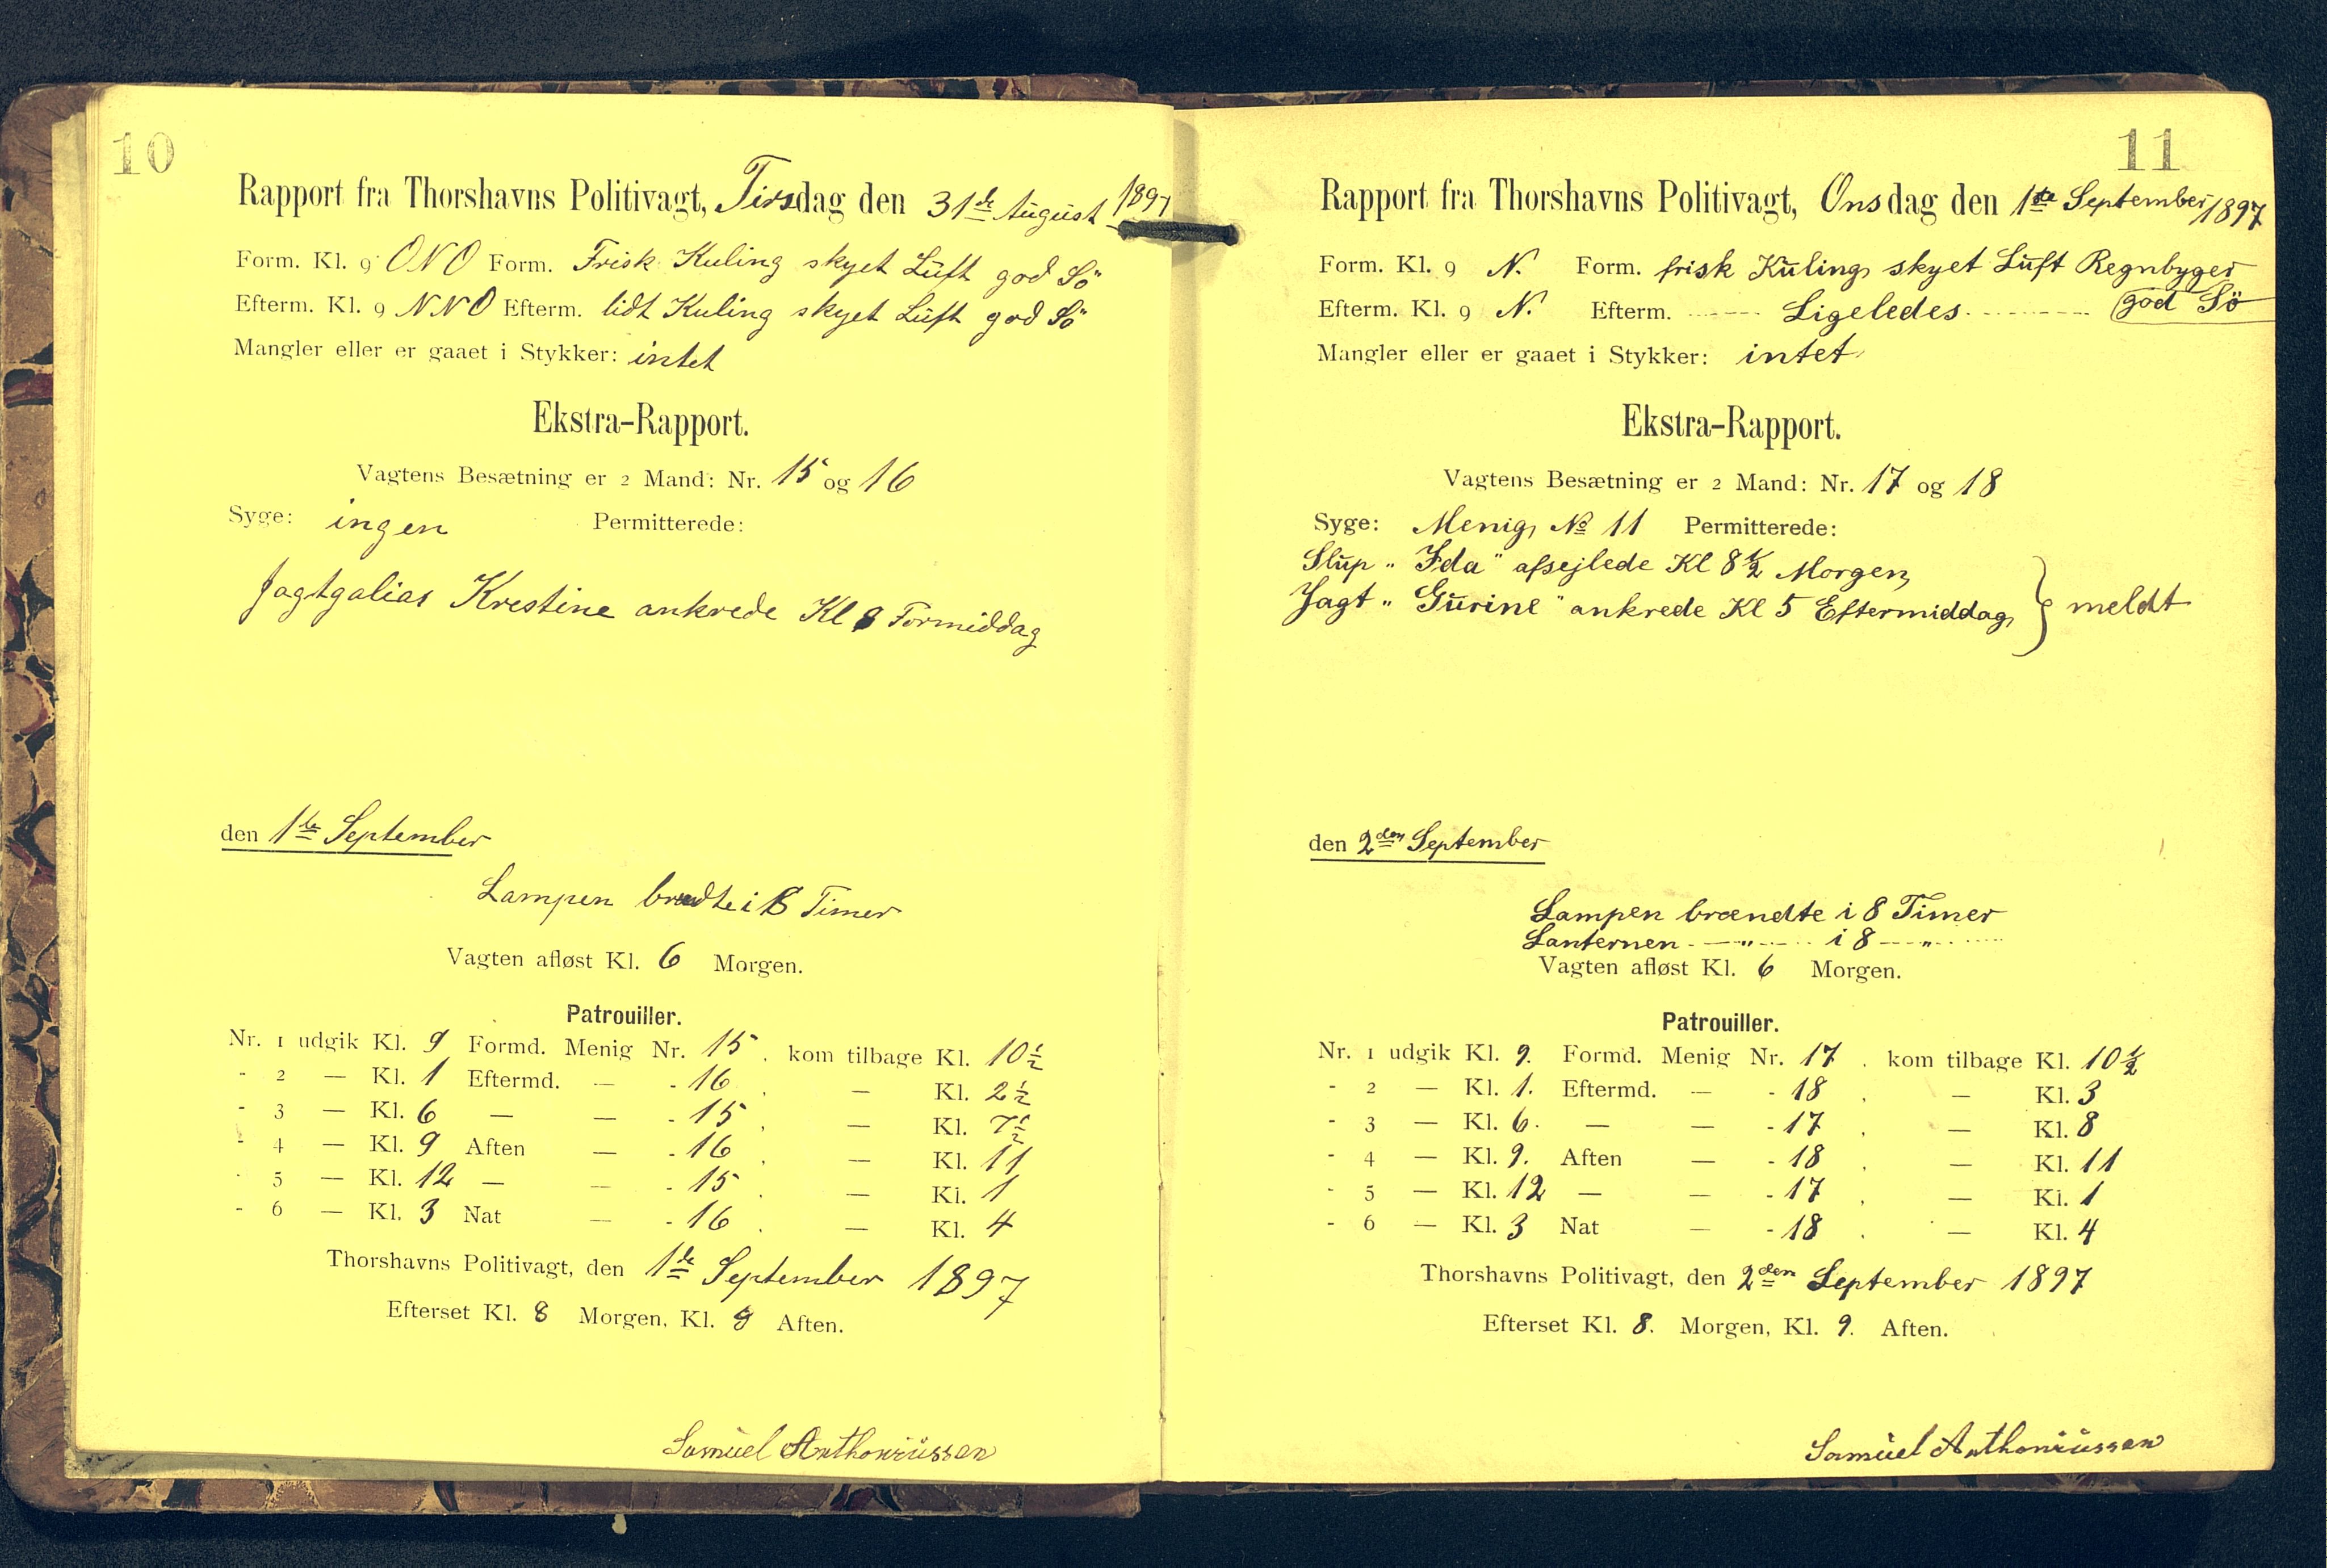 10
Rapport fra Thorshavns Politivagt, Tirsdag den 31te August 1897
Form. Kl. 9 ONO Form. Frisk Kuling skyet Luft god Sö
Efterm. Kl. 9 NNO Efterm. lidt Kuling skyet Luft god Sö
Mangler eller er gaaet i Stykker: intet
Ekstra-Rapport.
Vagtens Besætning er 2 Mand: Nr. 15 og 16
Syge: ingen Permitterede:
Jagtgalias Krestine ankrede Kl 8 Formiddag
den 1te September
Lampen brædte i 8 Timer
Vagten afløst Kl. 6 Morgen.
Patrouiller.
Nr. 1 udgik Kl. 9 Formd. Menig Nr. 15. kom tilbage Kl. 10 ½
- 2 — Kl. 1 Eftermd. — - 16. — Kl. 2 ½
- 3 — Kl. 6 — — - 15. — Kl. 7 ½
- 4 — Kl. 9 Aften — - 16. — Kl. 11
- 5 — Kl. 12 — — - 15. — Kl. 1
- 6 — Kl. 3 Nat — - 16. — Kl. 4
Thorshavns Politivagt, den 1te September 1897
Efterset Kl. 8 Morgen, Kl. 9 Aften.
Samuel Anthoniussen
11
Rapport fra Thorshavns Politivagt, Onsdag den 1ste September 1897
Form. Kl. 9 N. Form. frisk Kuling skyet Luft Regnbyger
Efterm. Kl. 9 N. Efterm. ------ Ligeledes. --------- god Sö
Mangler eller er gaaet i Stykker: intet
Ekstra-Rapport.
Vagtens Besætning er 2 Mand: Nr. 17 og 18
Syge: Menig No 11 Permitterede:
Slup „ Ida" afsejlede Kl 8 ½ Morgen,
Jagt „ Gurine" ankrede Kl 5 Eftermiddag, } meldt
den 2den September
Lampen brændte i 8 Timer
Lanternen - — " — i 8 — " —
Vagten afløst Kl. 6 Morgen.
Patrouiller.
Nr. 1 udgik Kl. 9. Formd. Menig Nr. 17. kom tilbage Kl. 10 ½
- 2 — Kl. 1. Eftermd. — - 18. — Kl. 3
- 3 — Kl. 6. — — - 17. — Kl. 8
- 4 — Kl. 9. Aften — - 18. — Kl. 11
- 5 — Kl. 12 — — - 17. — Kl. 1
- 6 — Kl. 3 Nat — - 18. — Kl. 4
Thorshavns Politivagt, den 2den September 1897
Efterset Kl. 8. Morgen, Kl. 9. Aften.
Samuel Anthoniussen